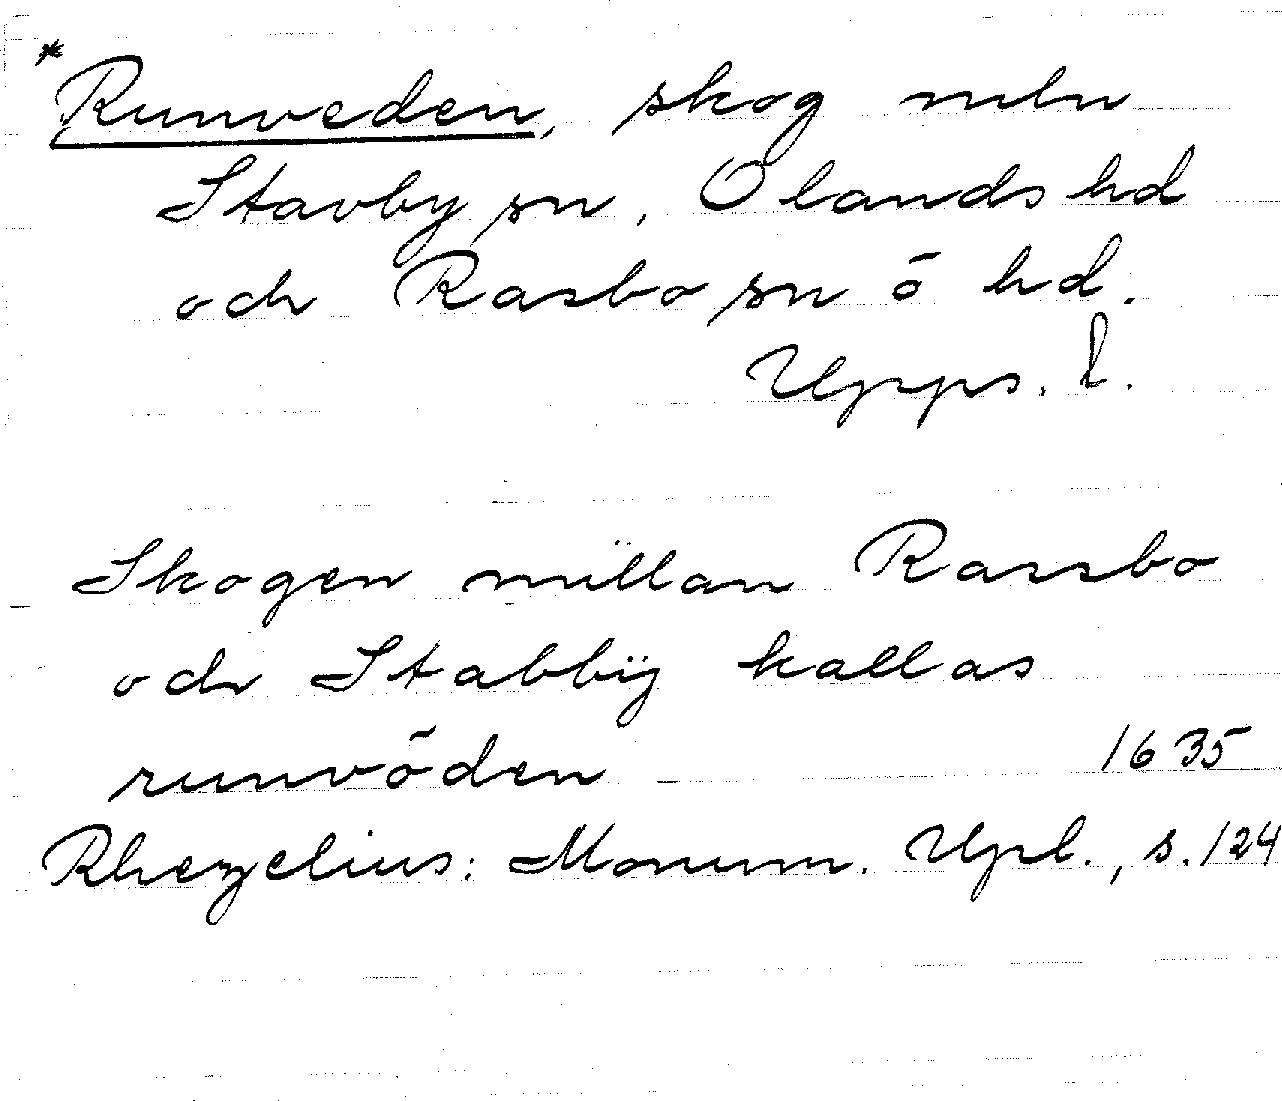 *Runveden, skog mln
Stavby sn, Olands hd
och Rasbo sn ō hd.
Upps. l.
Skogen müllan Rassbo
och Stabbÿ kallas
runvōden 1635
Rhezelius: Monum. Upl., s. 124